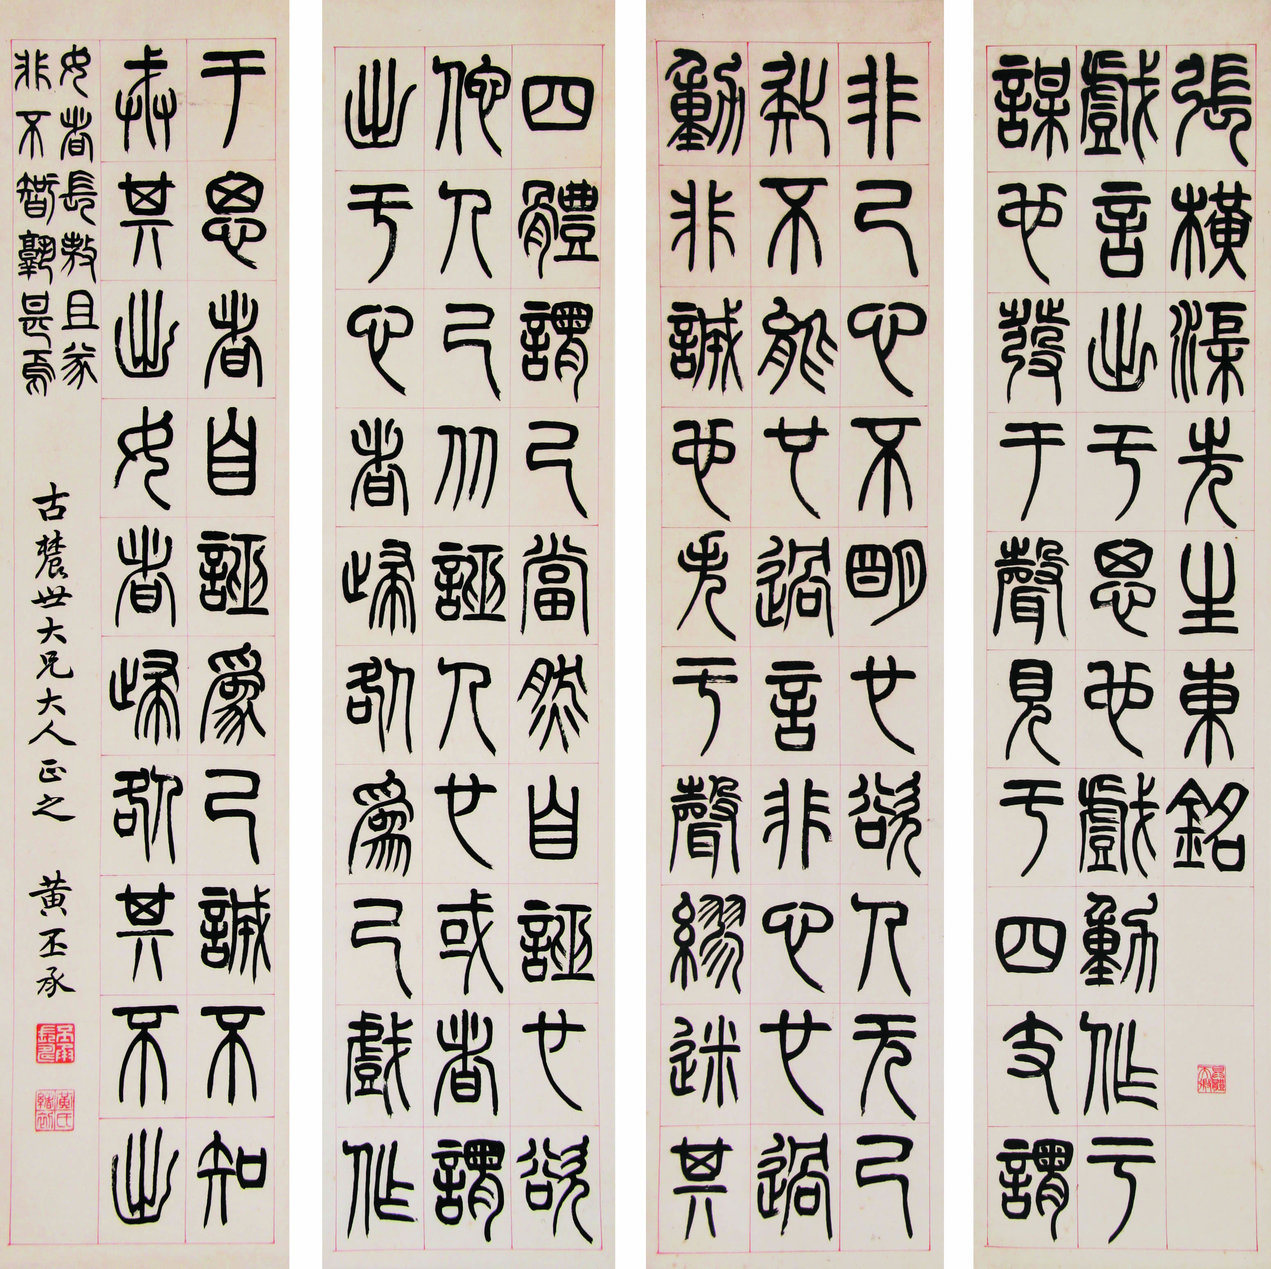 張橫渠先生東銘
戲言出于思也戲動作于
謀也發于聲見于四支謂
非己心不明也欲人无己
疑不能也過言非心也過
動非誠也失于聲繆迷其
四體謂己當然自誣也欲
佗人己从誣人也或者謂
出于心者歸咎爲己戲作
于思者自誣爲己誠不知
戒其出女者歸咎其不出
女者長敖且㒸
非不智孰甚焉
古辳世大兄大人正之 黃丕承